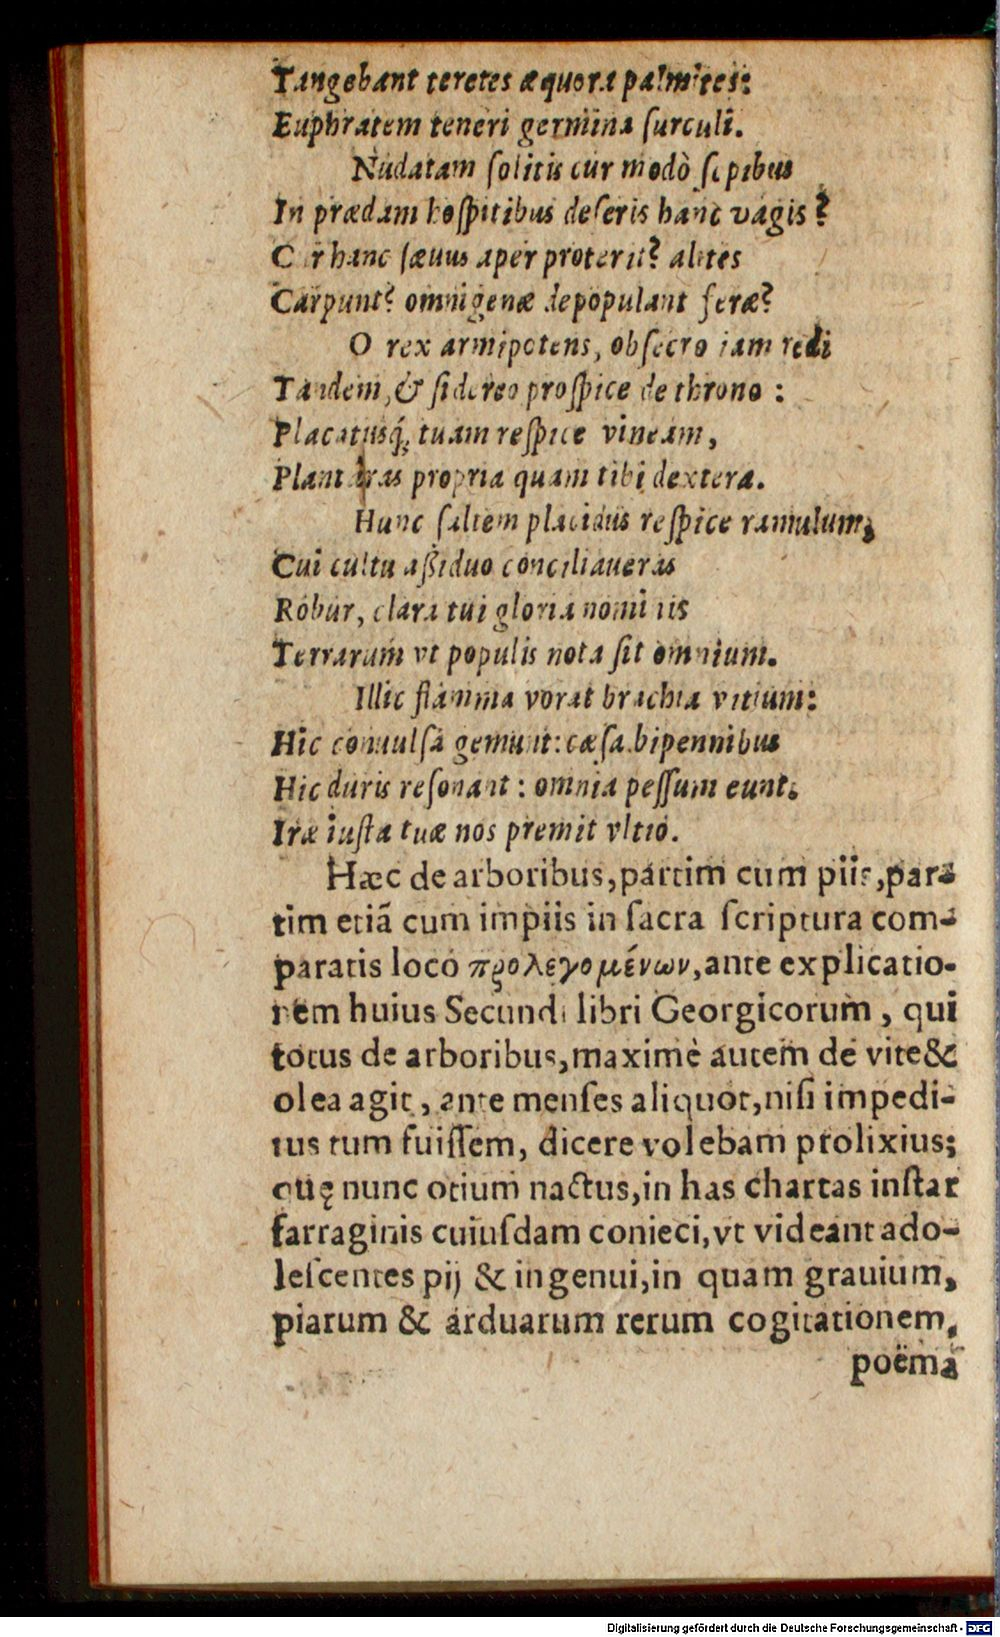 Tangebant teretes æquora palmites:
Euphratem teneri germina ſurculi.
Nudatam ſolitis cur modò ſepibus
In prædam hoſpitibus deſeris hanc vagis?
Cur hanc ſæuus aper proterit? alites
Carpunt? omnigenæ depopulant feræ?
O rex armipotens, obſecro iam redi
Tandem, & ſidereo proſpice de throno:
Placatusq́; tuam reſpice vineam,
Plantâras propria quam tibi dextera.
Hunc ſaltem placidus reſpice ramulum,
Cui cultu aßiduo conciliaueras
Robur, clara tui gloria nominis
Terrarum vt populis nota ſit omnium.
Illic flamma vorat brachia vitium:
Hic conuulſa gemunt: cæſa bipennibus
Hic duris reſonant: omnia peſſum eunt.
Iræ iuſta tuæ nos premit vltio.
Hæc de arboribus, partim cum piis, par-
tim etiã cum impiis in ſacra ſcriptura com-
paratis loco προλεγομένων, ante explicatio-
nem huius Secundi libri Georgicorum, qui
totus de arboribus, maximè autem de vite &
olea agit, ante menſes aliquot, niſi impedi-
tus tum fuiſſem, dicere volebam prolixius;
quę nunc otium nactus, in has chartas inſtar
farraginis cuiuſdam conieci, vt videant ado-
leſcentes pij & ingenui, in quam grauium,
piarum & arduarum rerum cogitationem,
poëma
Digitalisierung gefördert durch die Deutsche Forschungsgemeinschaft - DFG